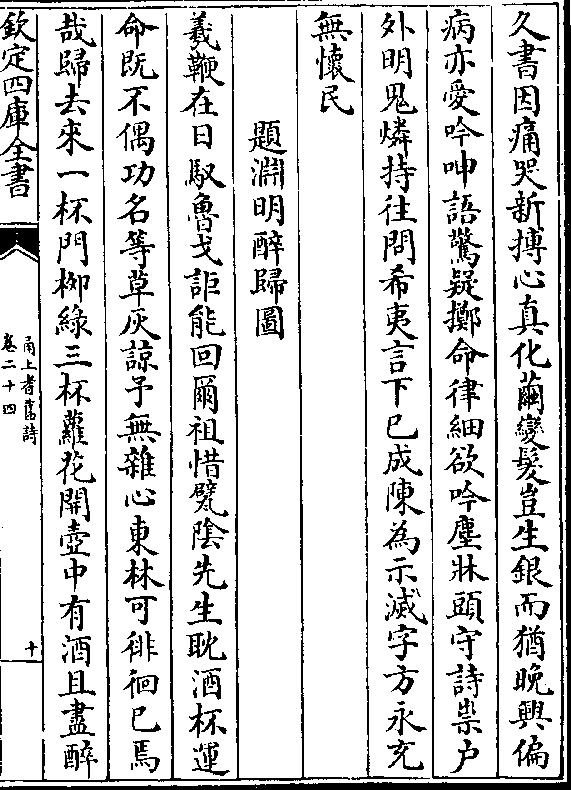 久書因痛哭新搏心真化繭變髮豈生銀而猶晚興偏
病亦愛吟呻語驚疑擲命律細欲吟塵牀頭守詩祟户
外明鬼燐持往問希夷言下已成陳為示滅字方永充
無懷民
題淵明醉歸圖
羲鞭在日馭魯戈詎能回爾祖惜甓陰先生耽酒杯運
命既不偶功名等草灰諒予無雜心東林可徘徊已焉
哉歸去來一杯門柳綠三杯蘿花開壺中有酒且盡醉
欽定四庫全書
甬上耆舊詩
卷二十四
十